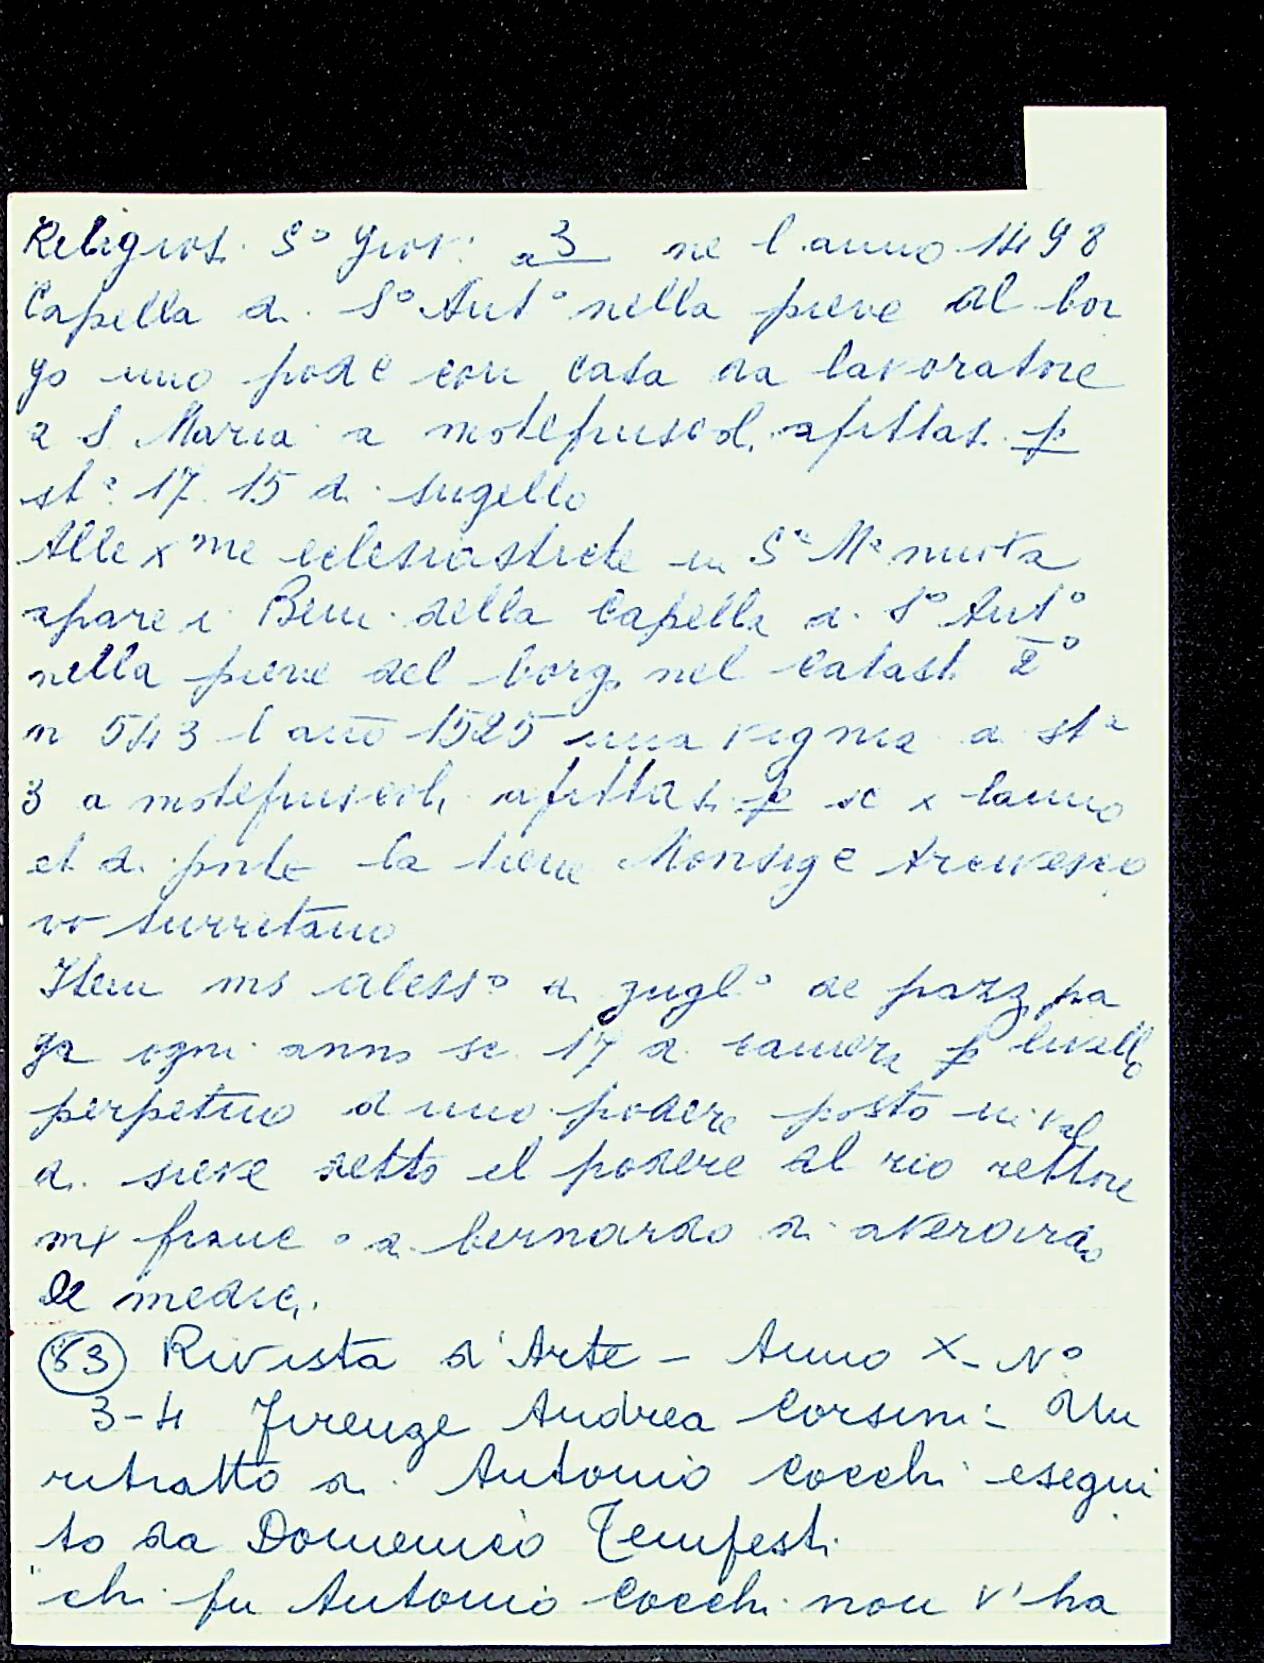 Religios. S° Giov: a 3 ne l anno 1498
Capella di S° Ant° nella pieve al bor
go uno pode con casa da lavoratore
a S Maria a motefuscoli afittas. p
st° 17. 15 di sugello
Alle x me eclesiastiche in S° M° nuova
apare i Beni della Capella di S° Ant°
nella pieve del borgo nel Catast. 2°
n 543 l año 1525 una vignia a st°
3 a motefuscoli afittas. p sc x lanno
et di pnte la tiene Monsig e Arcivesco
vo surretano
Item ms aless° di gugl° de pazzi pa
ga ogni anno sc 17 di camera p livello
perpetuo d uno podere posto in val
di sieve detto el podere al rio rettore
mx franc° di bernardo di averardo
de medici.
(63) Rivista d'Arte - Anno X - N°
3-4 Firenze Andrea Corsini: Un
ritratto di Antonio Cocchi esegui
to da Domenico Tempesti
"chi fu Antonio Cocchi non v'ha